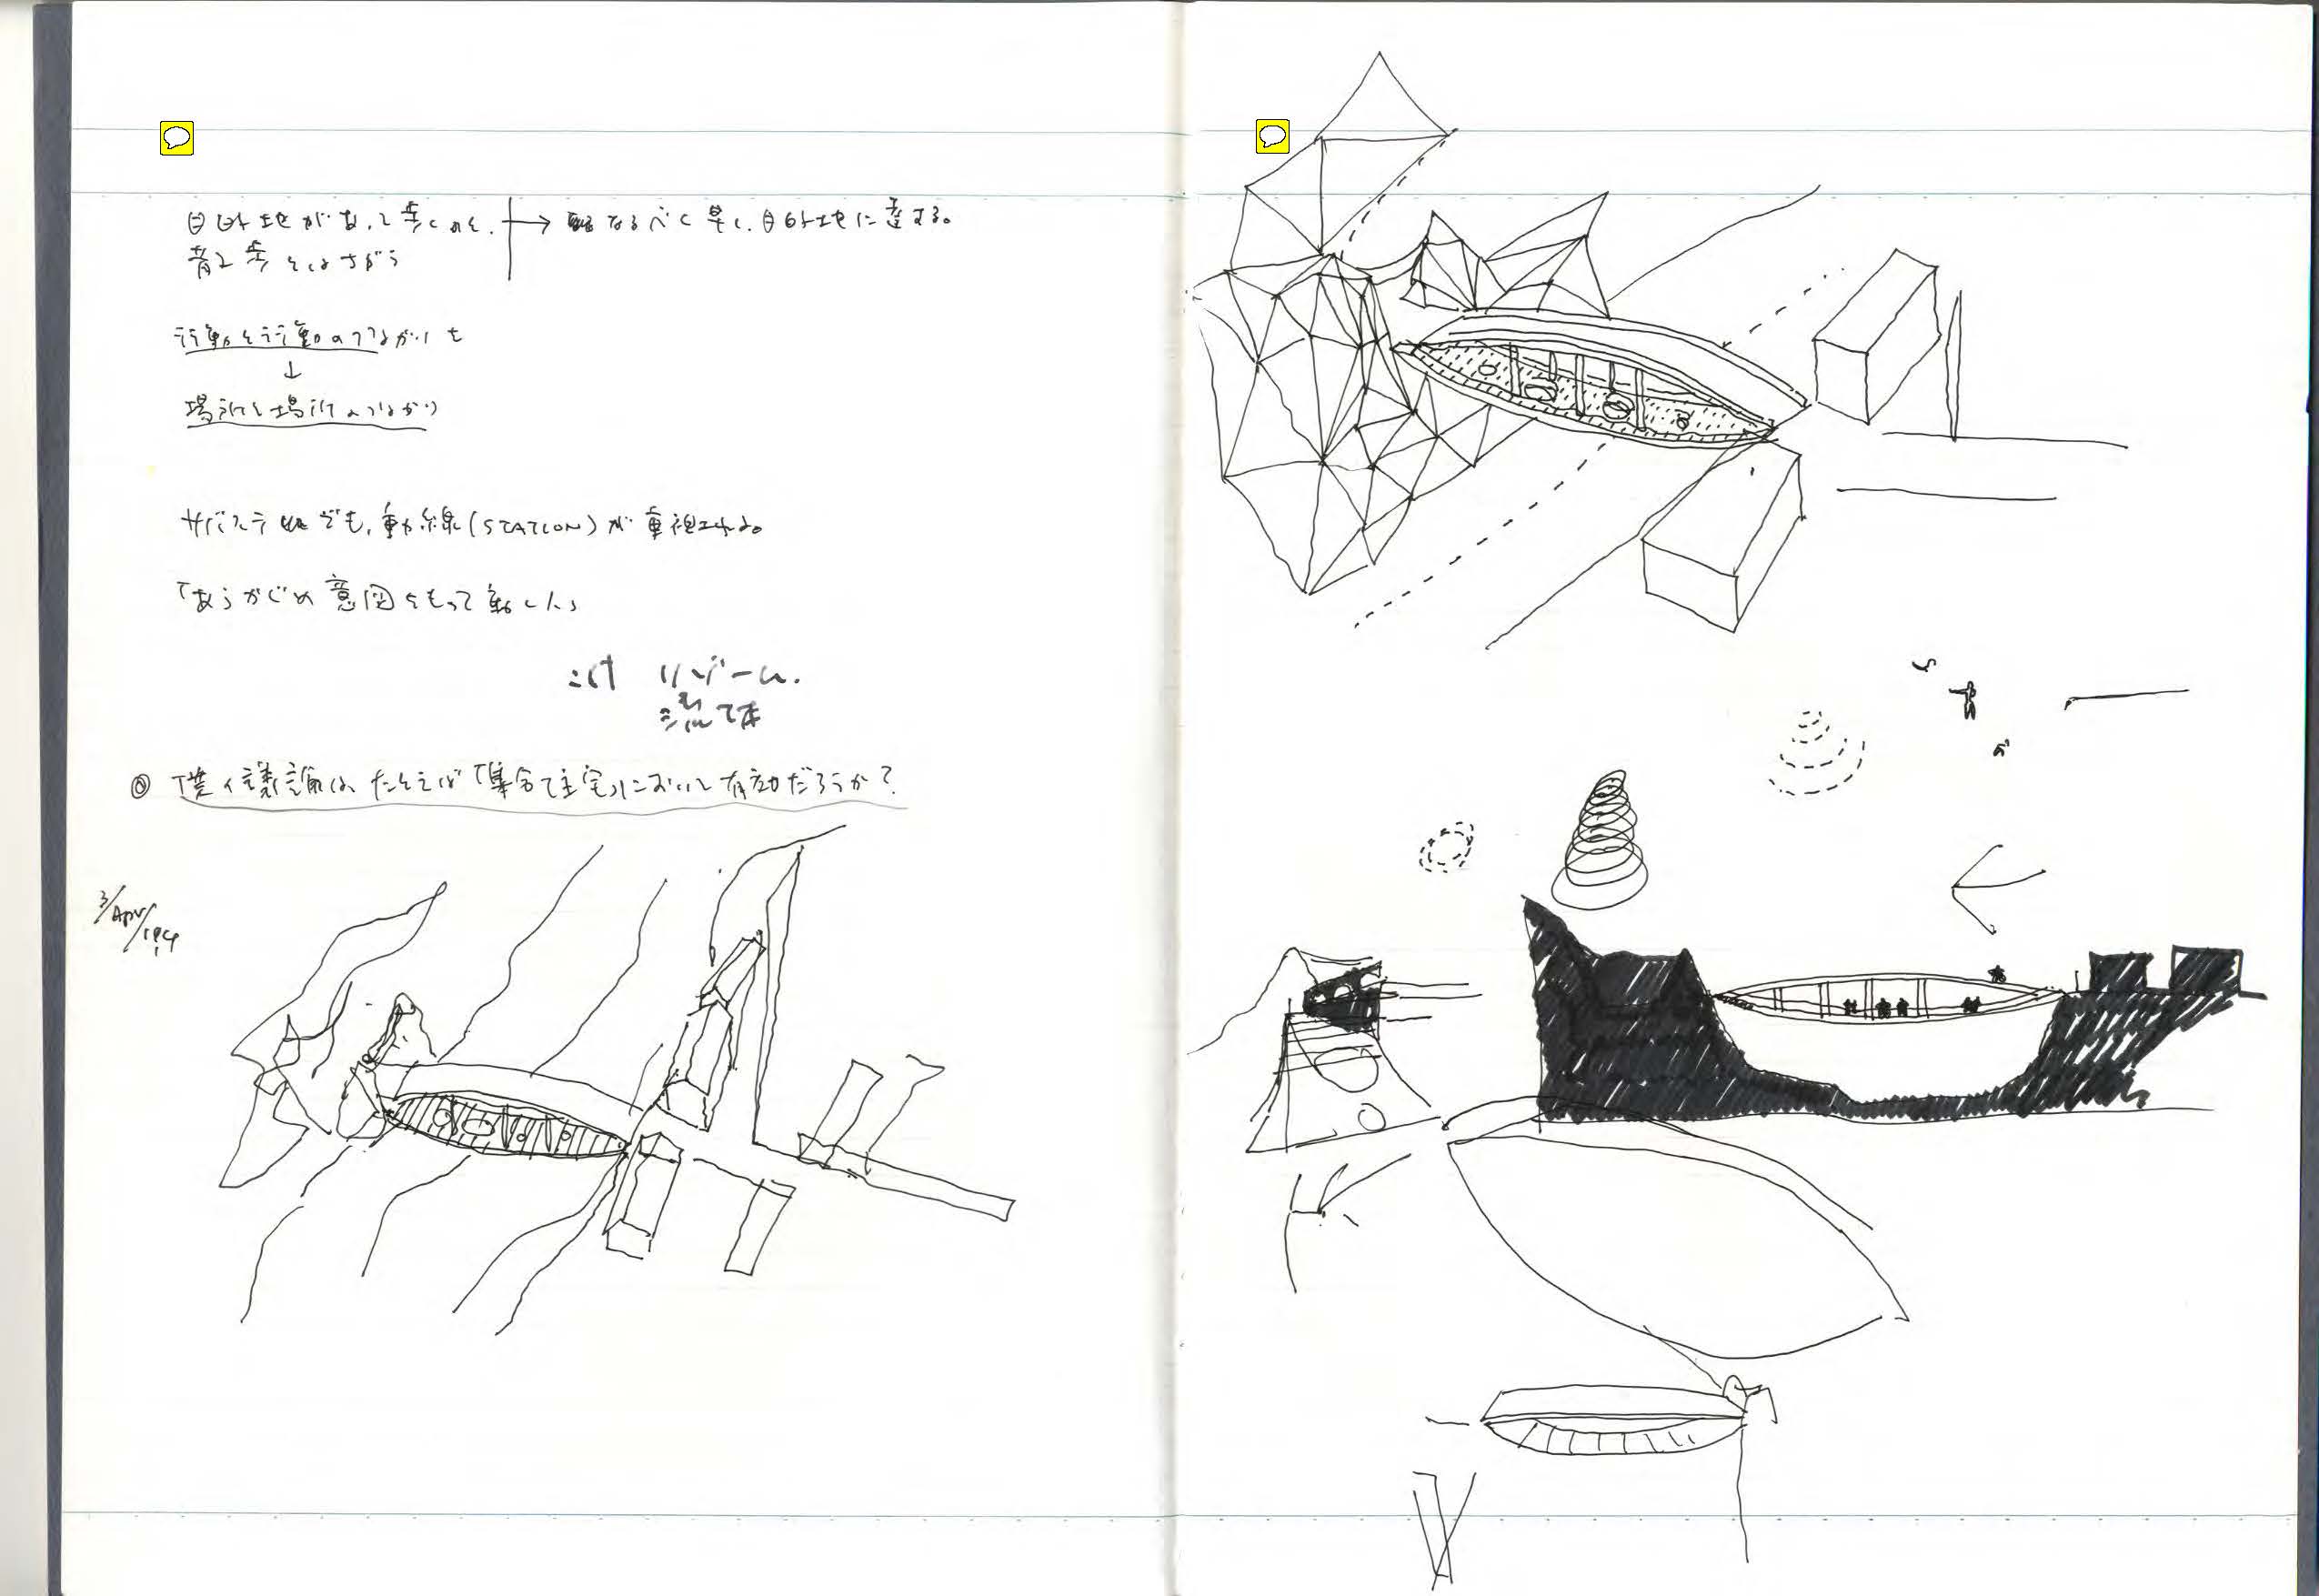 目的地があって歩くのと、→ なるべく早く、目的地に達する。
散歩とはちがう
行動と行動のつながりを
↓
場所と場所のつながり
サバステ でも、動線(STATION)が重視される。
「あらかじめ意図をもって動く人」
リゾーム.
◎ 僕の議論は、たとえば「集合住宅」において有効だろうか?
3/Apr/194